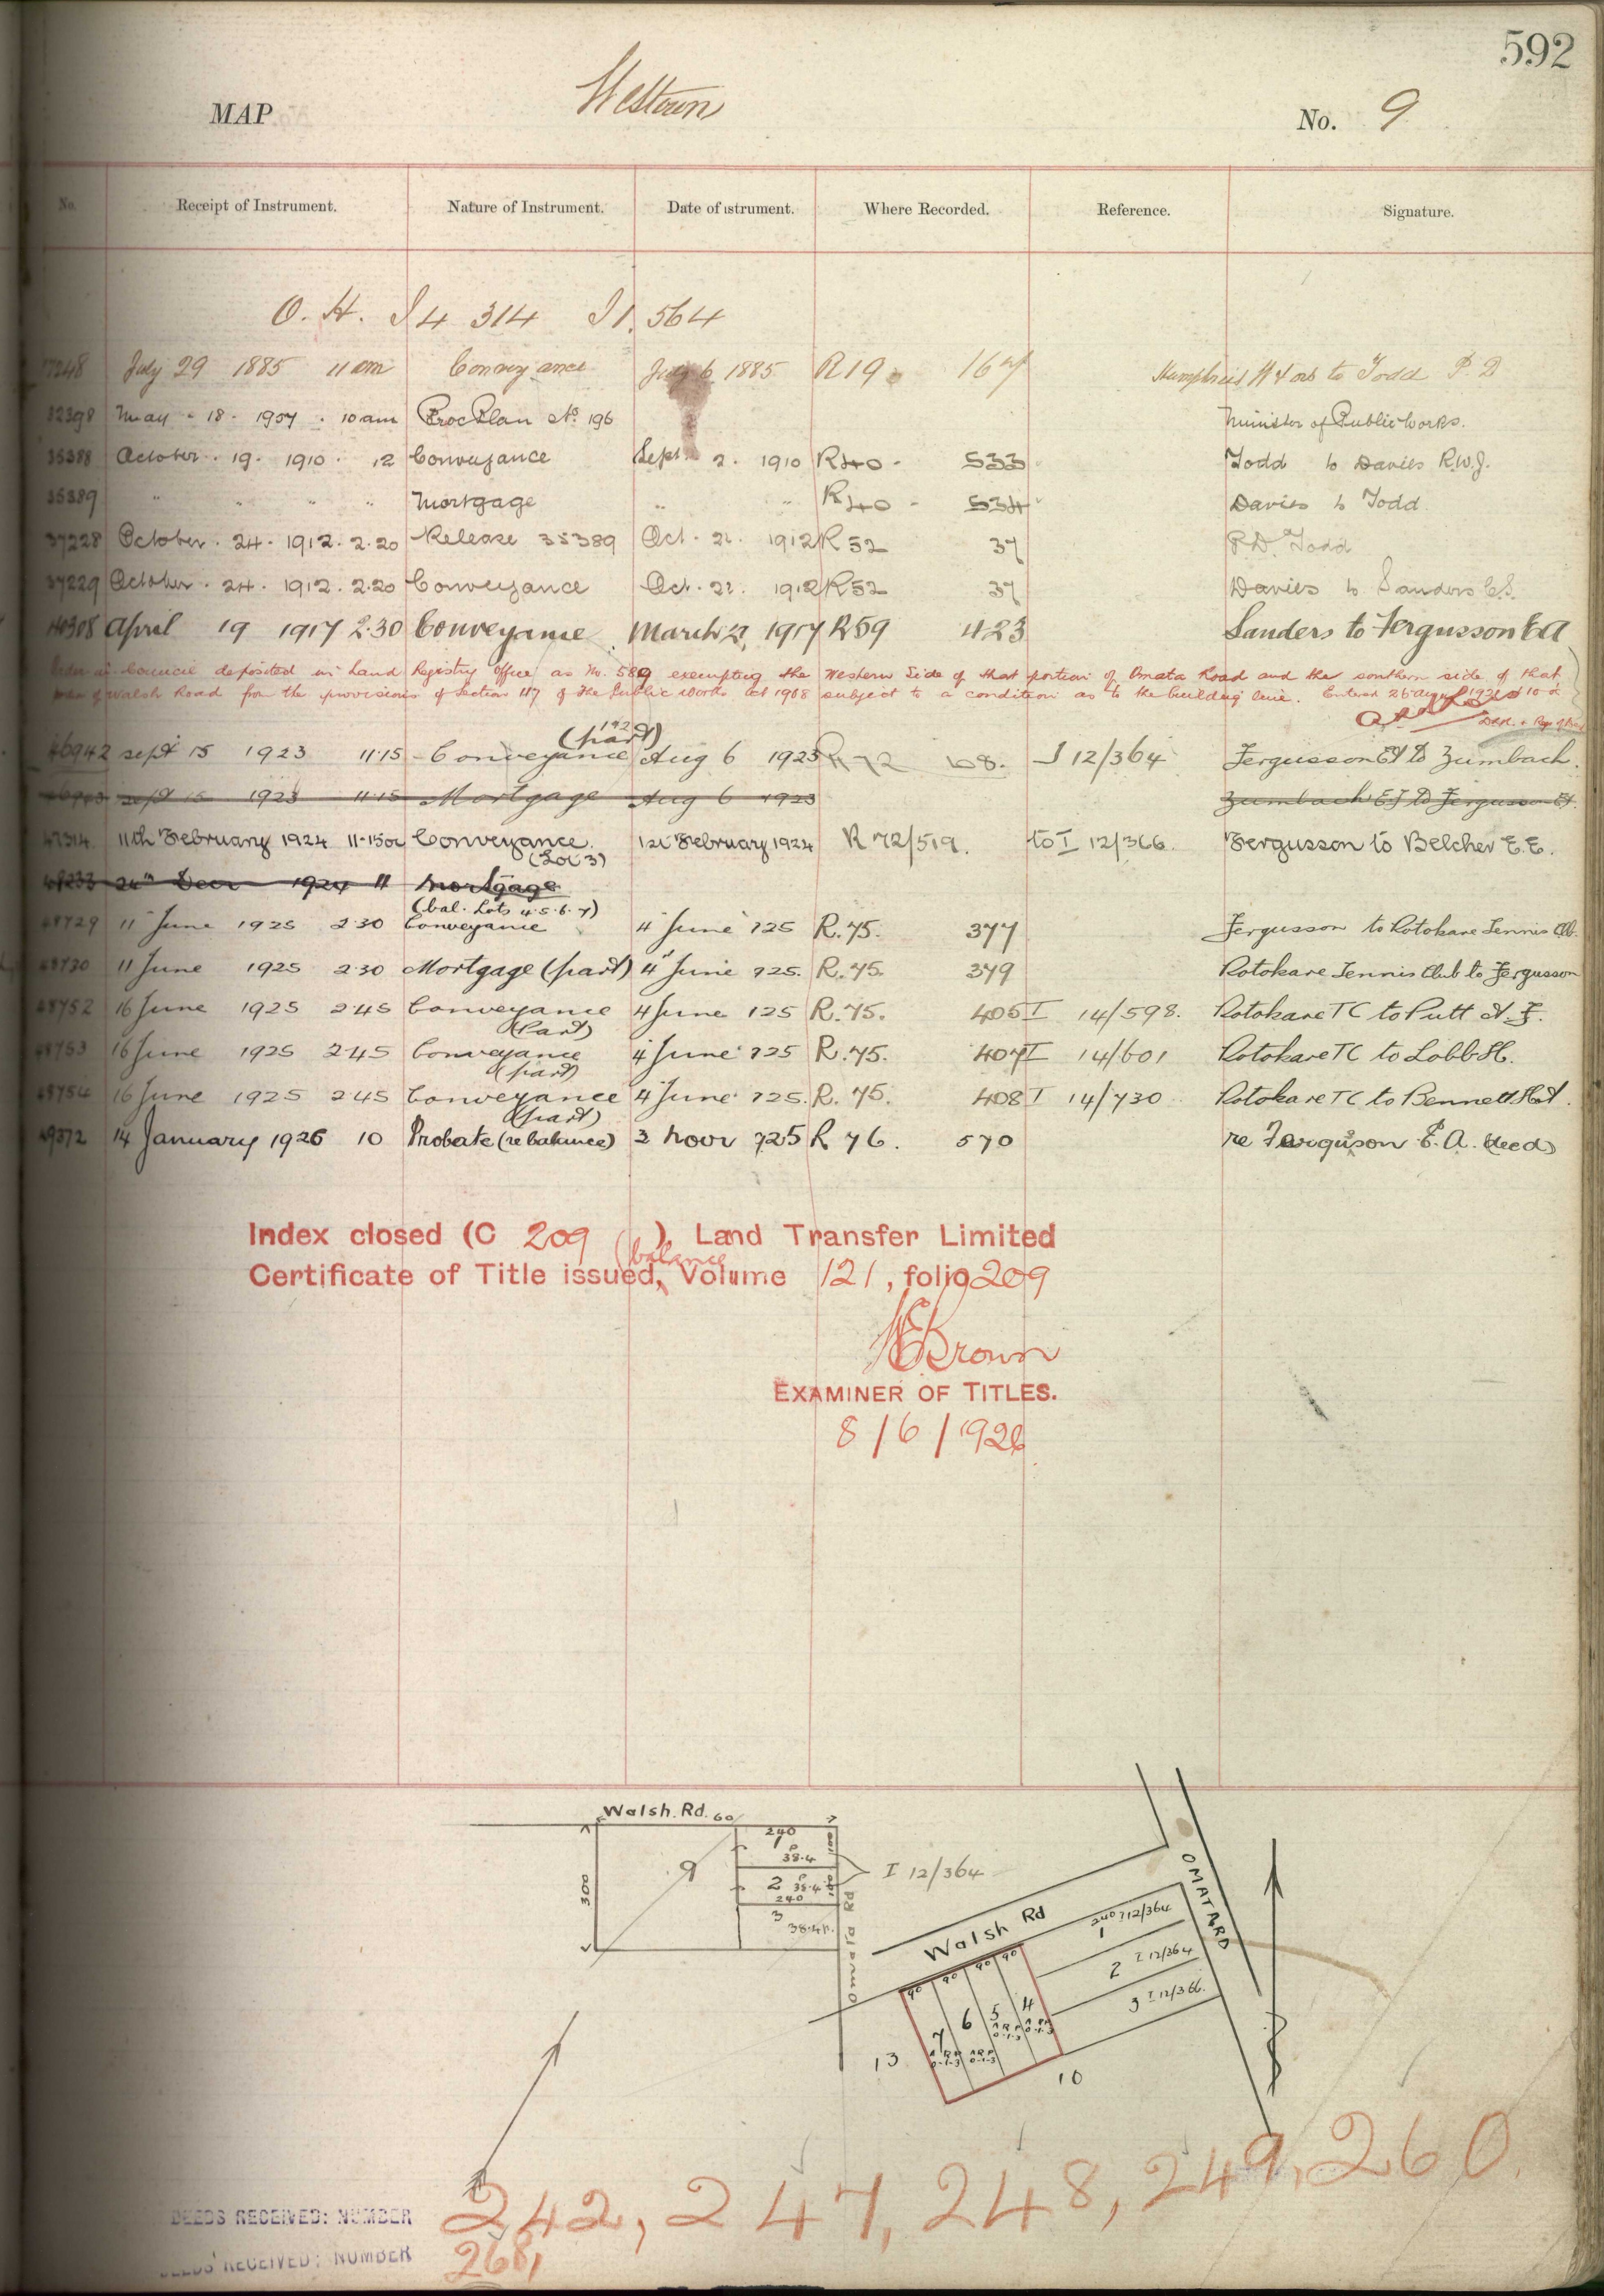 592
MAP Westown No. 9
No. Receipt of Instrument. Nature of Instrument. Date of Instrument. Where Recorded. Reference. Signature.
O. H. I 4 314 I 1. 564
July 29 1885 11 am Conveyance July 6 1885 R19 167 Humphries to Todd P. D
32398 May - 18 - 1907 . 10 am Proc Plan No 196 Minister of Public Works.
35388 October . 19 . 1910 . 12 Conveyance Sept. 2 . 1910 R40 - 533 Todd to Davies R.W.J.
35389 " " " " Mortgage " " R40 - 534 Davies to Todd
37228 October . 24 . 1912 . 2.20 Release 35389 Oct . 21 . 1912 R52 37 P.D. Todd
37229 October . 24 . 1912 . 2.20 Conveyance Oct . 22 . 1912 R52 37 Davies to Sanders C.S.
40308 April 19 1917 2.30 Conveyance March 27 1917 R59 423 Sanders to Fergusson E A
Order in Council deposited in Land Registry Office as No. 589 exempting the Western Side of that portion of Omata Road and the southern side of that
of Walsh Road from the provisions of Section 117 of the Public Works Act 1908 subject to a condition as to the building line. Entered 26 Aug 1921 at 10
(part)
46942 Sept 15 1923 11.15 Conveyance Aug 6 1923 R 72 108. I 12/364 Fergusson EA to Zumbach.
Sept 15 1923 11.15 Mortgage Aug 6 1923 Zumbach E J to Fergusson EA.
47314 11th February 1924 11-15 Conveyance 1st February 1924 R 72/519. to I 12/366. Fergusson to Belcher E.E.
(Lot 3)
48233 24th Decr 1924 11 Mortgage
(bal. Lots 4.5.6.7)
48729 11 June 1925 2.30 Conveyance 4 June 1925 R.75. 377 Fergusson to Rotokare Tennis Club.
48730 11 June 1925 2.30 Mortgage (part) 4 June 1925. R.75. 379 Rotokare Tennis Club to Fergusson
48752 16 June 1925 2.45 Conveyance 4 June 1925 R.75. 405 I 14/598. Rotokare TC to Putt A. F.
(Part)
48753 16 June 1925 2.45 Conveyance 4 June 1925 R.75. 407 I 14/601 Rotokare TC to Lobb H.
(part)
48754 16 June 1925 2.45 Conveyance 4 June 1925. R.75. 408 I 14/730 Rotokare TC to Bennett H A.
(part)
49372 14 January 1926 10 Probate (re balance) 3 Novr 1925 R 76. 570 re Fergusson E. A. (decd)
Index closed (C 209 ), Land Transfer Limited
(balance
Certificate of Title issued, Volume 121, folio 209
Brown
EXAMINER OF TITLES.
8/6/1926
Walsh. Rd. 60
240
1
38.4
9
300
2 38.4
240
3
38.4 p.
Omata Rd
I 12/364
Walsh Rd
OMATA RD
1 I 12/364
2 I 12/364
3 I 12/366.
90 90 90 90
7 6 5 4
A R P 0-1-3
A R P 0-1-3
A R P 0-1-3
A R P 0-1-3
13
10
242, 247, 248, 249, 260.
DEEDS RECEIVED: NUMBER
DEEDS RECEIVED: NUMBER
268,